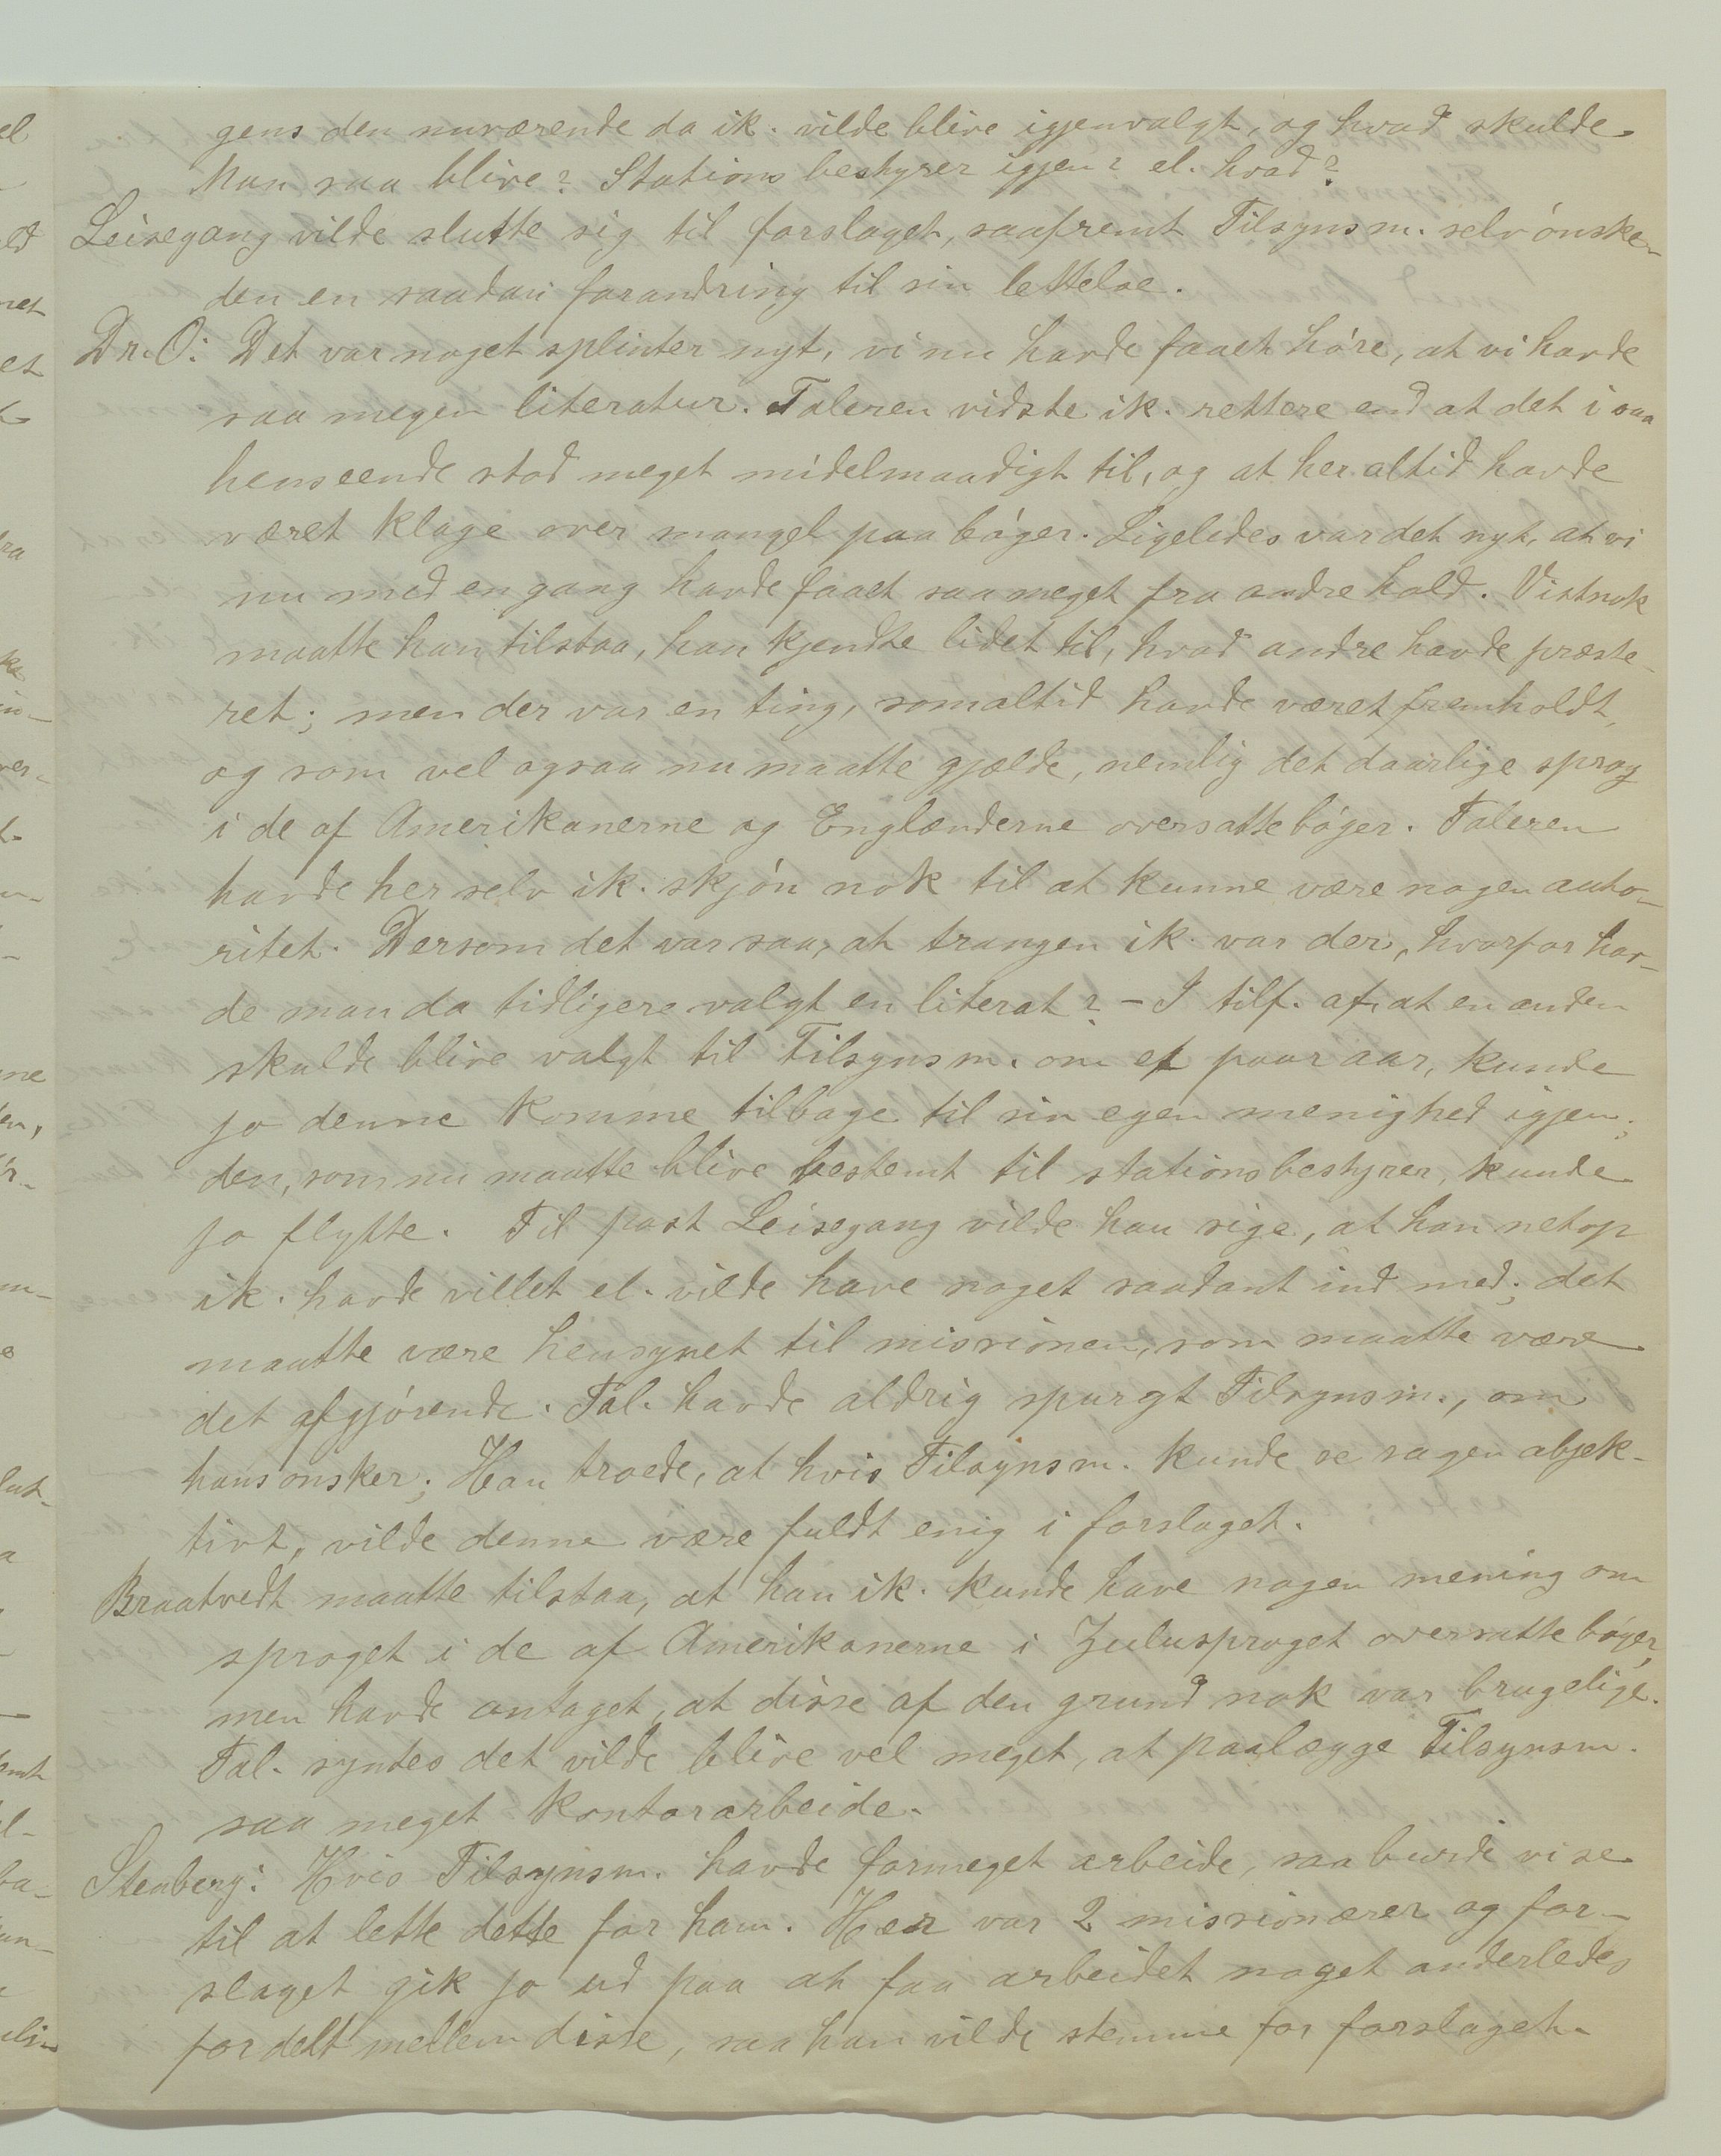 gens den nuværende da ik. vilde blive igjenvalgt, og hvad skulde
Man saa blive? Stations bestyrer igjen? el. hvad?
Leisegang vilde slutte sig til forslaget, saafremt Tilsynsm. selv ónske-
den en saadan forandring til sin lettelse.
Dr. O: Det var noget splinter nyt, vi nu havde faaet hóre, at vi havde
saa megen literatur. Taleren vidste ik. rettere end at det i saa
henseende stod meget midelmaadigt til, og at her altid havde
været klage over mangel paa bóger. Ligeledes var det nyt, at vi
nu med en gang havde faaet saa meget fra andre hold. Vistnok
maatte han tilstaa, han kjendte lidet til, hvad andre havde præste-
ret; men der var en ting, som altid havde været fremholdt,
og som vel ogsaa nu maatte gjælde, nemlig det daarlige sprog
i de af Amerikanerne og Englænderne oversatte bóger. Taleren
havde her selv ik. skjón nok til at kunne være nogen auto-
ritet. Dersom det var saa, at trangen ik. var der, hvorfor hav-
de man da tidligere valgt en literat? - I tilf. af, at en anden
skulde blive valgt til Tilsynsm. om et paar aar, kunde
jo denne komme tilbage til sin egen menighed igjen;
den, som nu maatte blive bestemt til stationsbestyrer, kunde
jo flytte. Til past Leisegang vilde han sige, at han netop
ik. havde villet el. vilde have noget saadant ind med; det
maatte være hensynet til missionen, som maatte være
det afgjórende. Tal. havde aldrig spurgt Tilsynsm., om
hans onsker; Han troede, at hvis Tilsynsm. kunde se sagen objek-
tivt, vilde denne være fuldt enig i forslaget.
Braatvedt maatte tilstaa, at han ik. kunde have nogen mening om
sproget i de af Amerikanerne i Zulusproget oversatte bóger,
men havde antaget, at disse af den grund nok var brugelige.
Tal. syntes det vilde blive vel meget, at paalægge Tilsynsm.
saa meget kontorarbeide.
Stenberg: Hvis Tilsynsm. havde formeget arbeide, saa burde vi se
til at lette dette for ham. Her var 2 missionærer og for-
slaget gik jo ud paa at faa arbeidet noget anderledes
fordelt mellem disse, saa han vilde stemme for forslaget.